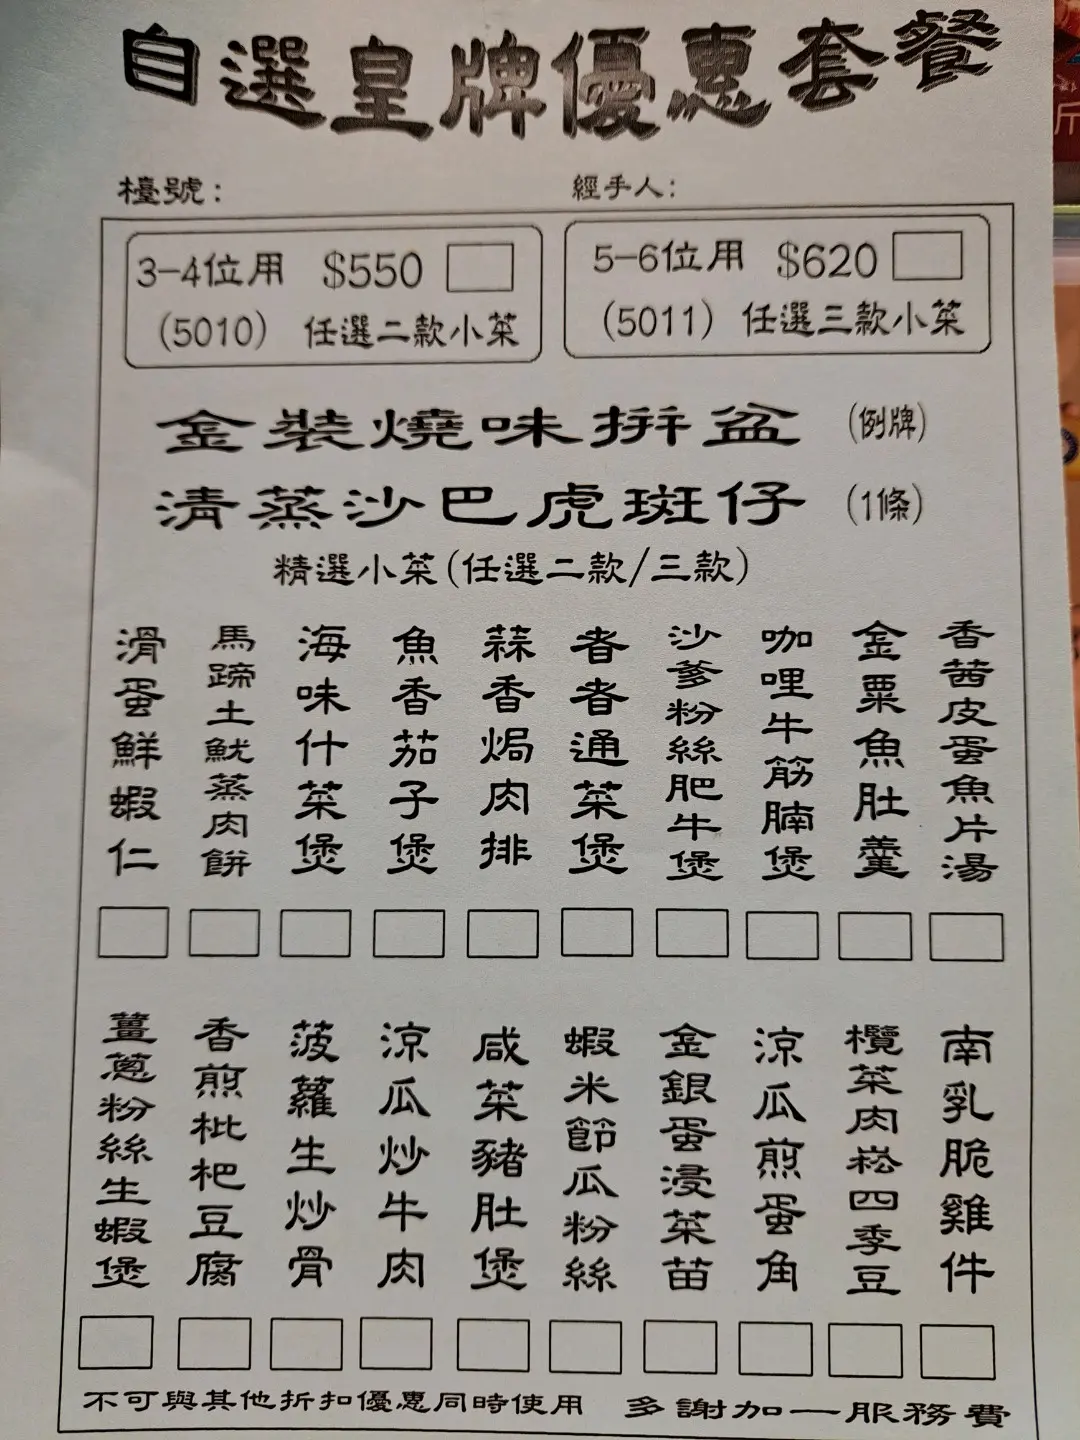 自選皇牌優惠套餐
檯號：
經手人：
3-4位用 $550
(5010) 任選二款小菜
5-6位用 $620
(5011) 任選三款小菜
金裝燒味拼盆 (例牌)
清蒸沙巴虎斑仔 (1條)
精選小菜(任選二款/三款)
香茜皮蛋魚片湯
金粟魚肚羹
咖哩牛筋腩煲
沙爹粉絲肥牛煲
者者通菜煲
蒜香焗肉排
魚香茄子煲
海味什菜煲
馬蹄土魷蒸肉餅
滑蛋鮮蝦仁
南乳脆雞件
欖菜肉崧四季豆
涼瓜煎蛋角
金銀蛋浸菜苗
蝦米節瓜粉絲
咸菜豬肚煲
涼瓜炒牛肉
菠蘿生炒骨
香煎枇杷豆腐
薑蔥粉絲生蝦煲
不可與其他折扣優惠同時使用 多謝加一服務費
斤